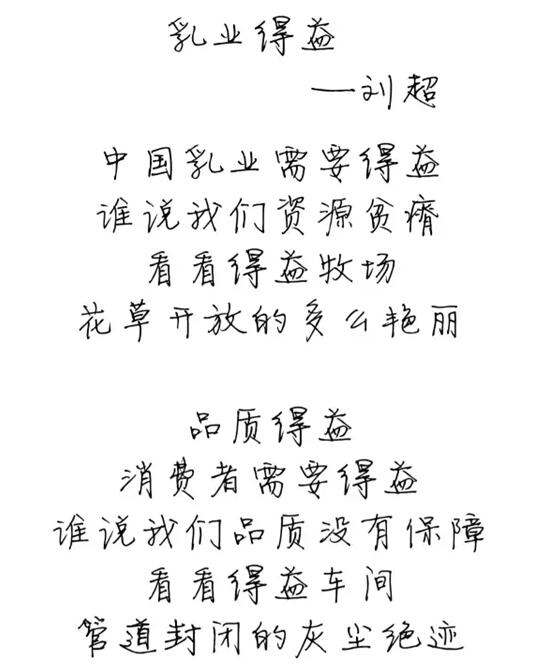 乳业得益
—刘超
中国乳业需要得益
谁说我们资源贫瘠
看看得益牧场
花草开放的多么艳丽
品质得益
消费者需要得益
谁说我们品质没有保障
看看得益车间
管道封闭的灰尘绝迹